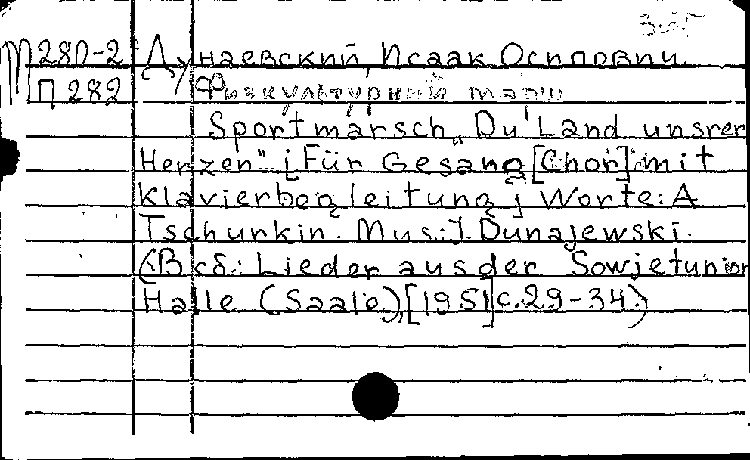 П280-2 Дунаевский, Исаак Осипович.
П 282 Физкультурный марш
Sportmarsch „Du Land unsrer
Herzen" [Für Gesang [Chor] mit
Klavierbegleitung; Worte: A
Tschurkin. Mus: J. Dunajewski.
(В сб.: Lieder aus der Sowjetunion
Halle (Saale), [1951] c. 29-34.)